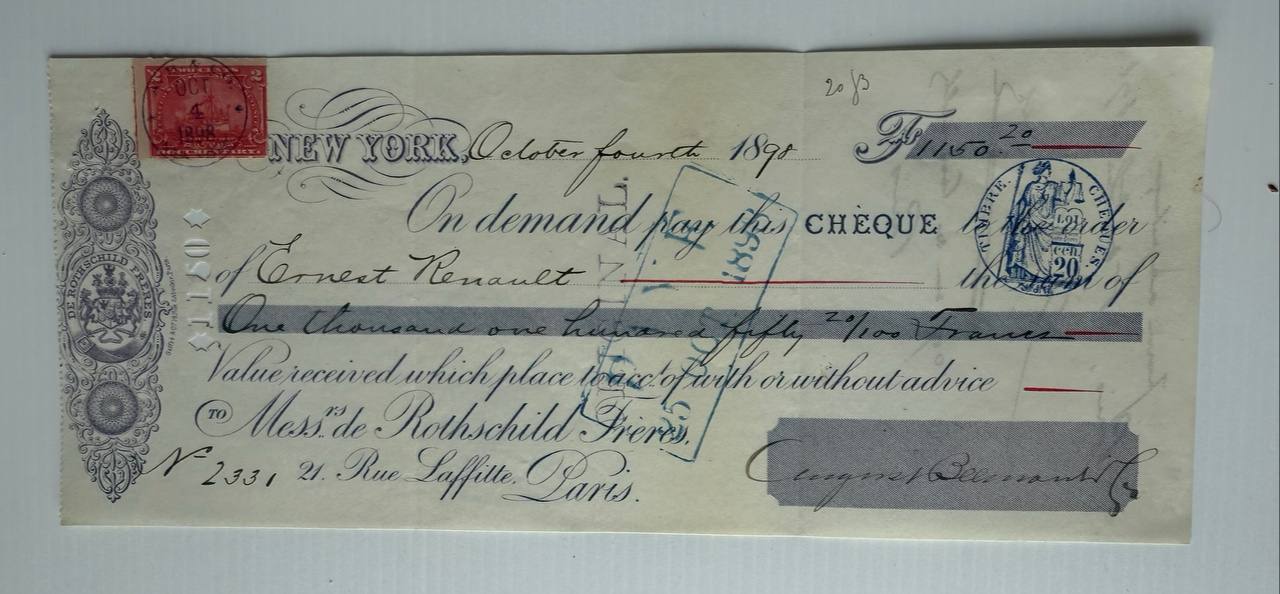 OCT
4
1898
2
2
DOCUMENTARY
20 f3
NEW YORK, October fourth 1898 Fs 1150.20
On demand pay this CHÈQUE to the order
of Ernest Renault the sum of
One thousand one hundred fifty 20/100 Francs
Value received which place to acct. of with or without advice
TO Messrs. de Rothschild Frères.
No 2331 21. Rue Laffitte. Paris.
August Belmont & Co
DE ROTHSCHILD FRÈRES
1150
ORIGINAL.
TIMBRE CHÈQUES.
LOI
cen
20